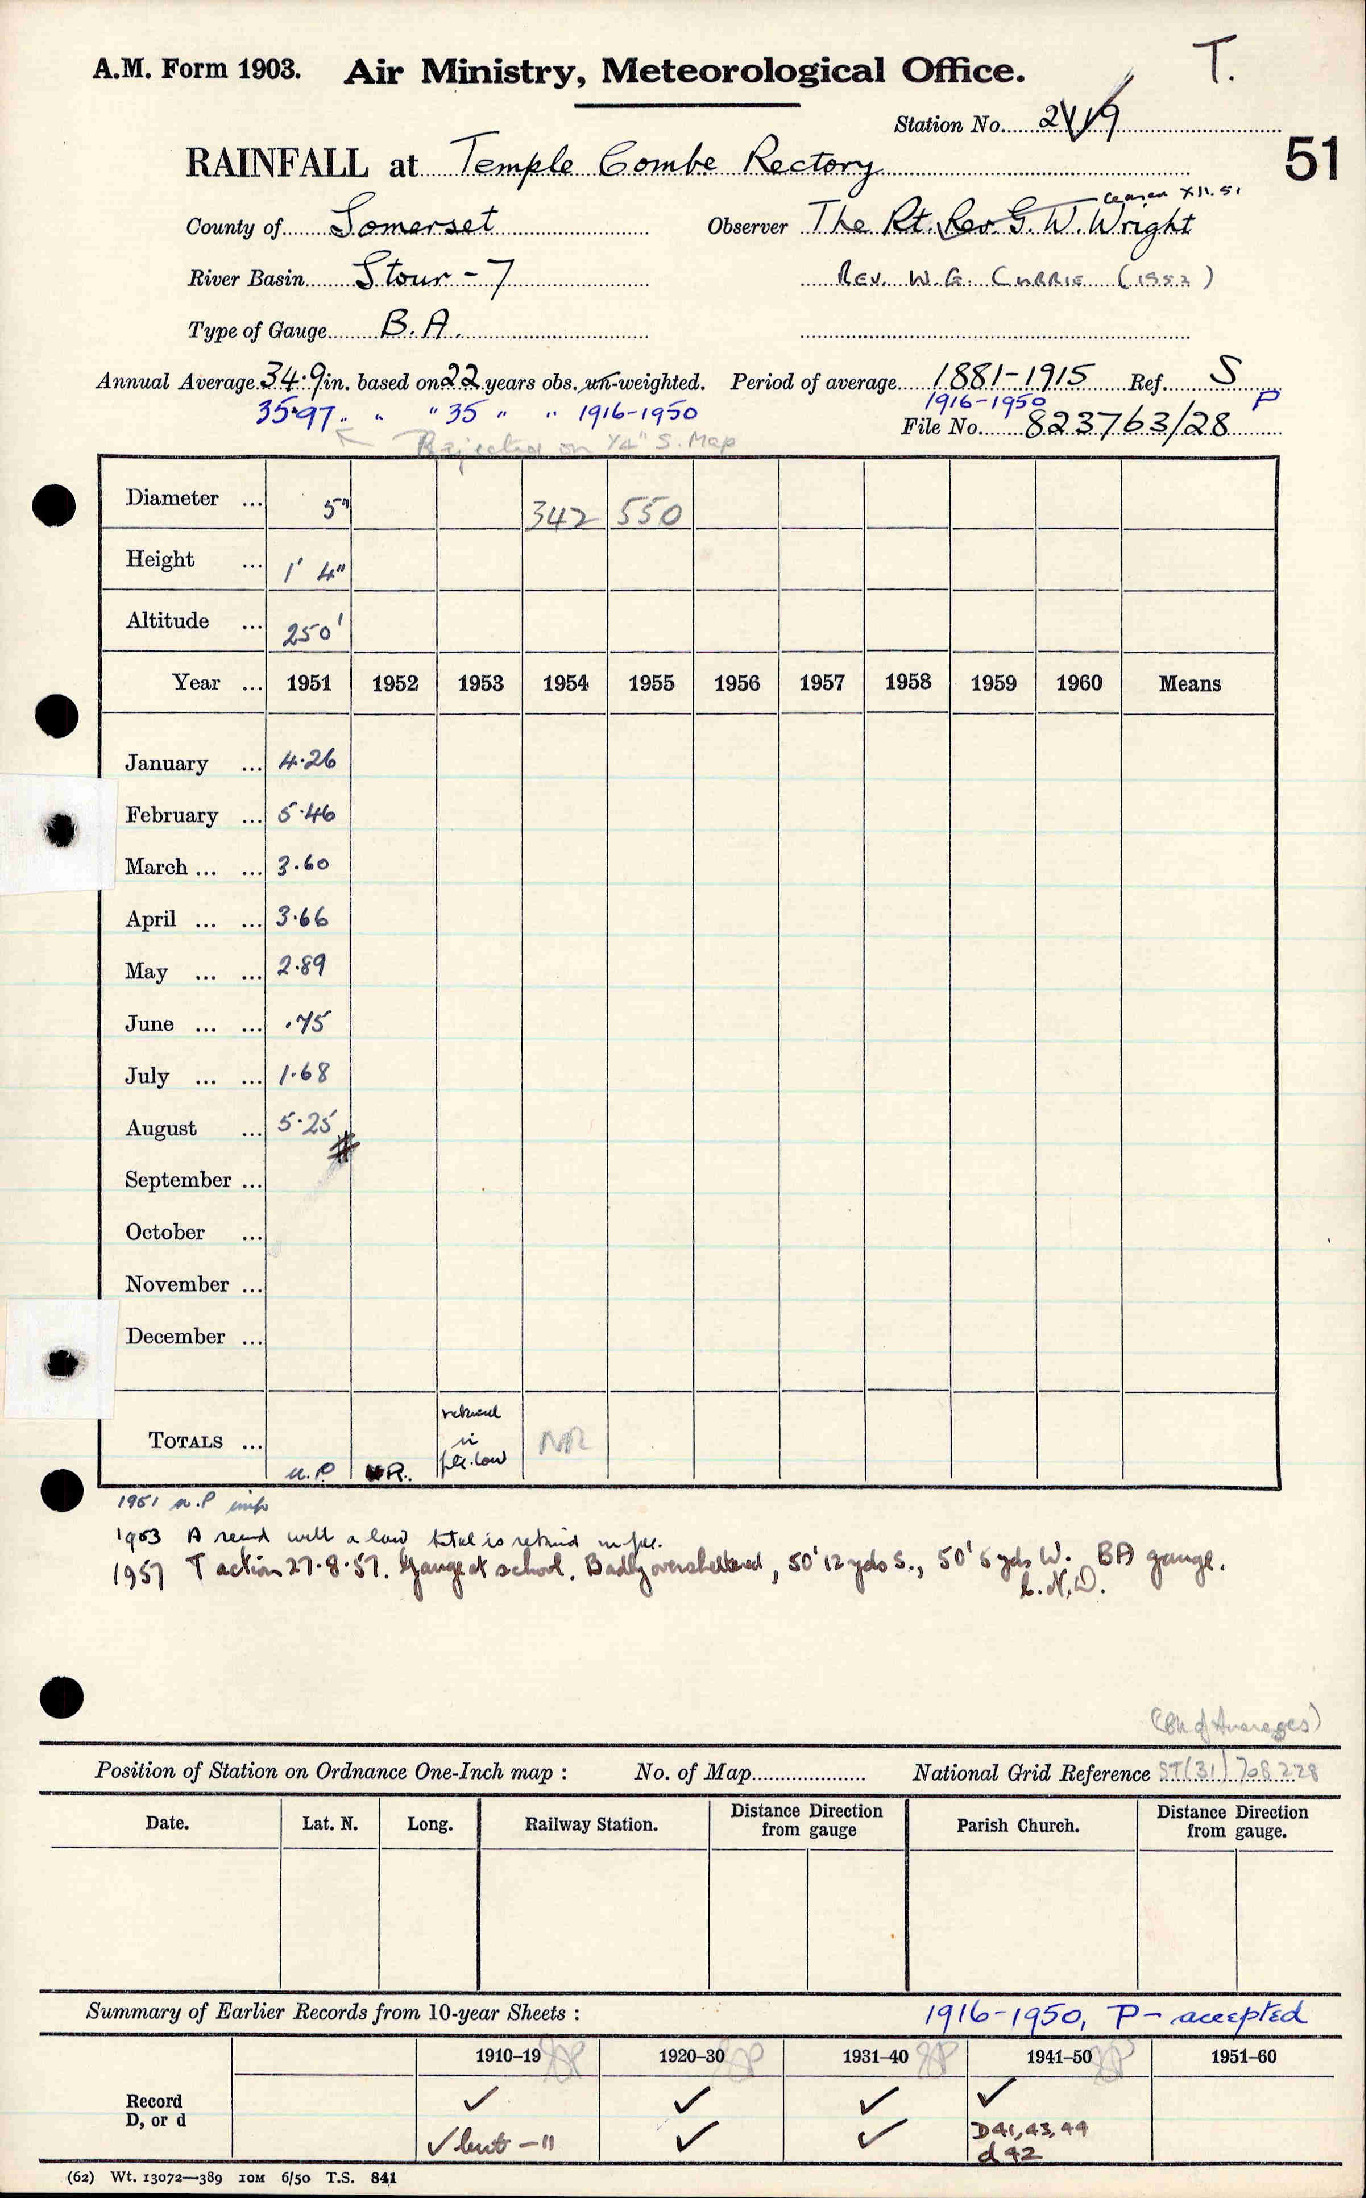 A.M. Form 1903. Air Ministry, Meteorological Office. T.
Station No. 2119
51
RAINFALL at Temple Combe Rectory
ceased XII. 51
County of Somerset Observer The Rt. Rev. G. W. Wright
River Basin Stour - 7 REV. W. G. CURRIE (1952)
Type of Gauge B.A.
Annual Average 34.9 in. based on 22 years obs. un-weighted. Period of average 1881-1915 Ref. S
35.97 " " " 35 " " 1916-1950 1916-1950 P
File No. 823763/28
Rejected on 1/4" S. Map
Diameter ... 5" 342 550
Height ... 1' 4"
Altitude ... 250'
Year ... 1951 1952 1953 1954 1955 1956 1957 1958 1959 1960 Means
January ... 4.26
February ... 5.46
March ... ... 3.60
April ... ... 3.66
May ... ... 2.89
June ... ... .75
July ... ... 1.68
August ... 5.25
#
September ...
October ...
November ...
December ...
TOTALS ... n.P. NR. in NR
1951 n.P
1953 A with a low total is in
1957 T action 27.8.57. Gauge at school. Badly oversheltered, 50' 12 yds S., 50' 5 yds W. BA gauge.
(Bk of Averages)
Position of Station on Ordnance One-Inch map : No. of Map National Grid Reference ST(31) 708228
Date. Lat. N. Long. Railway Station. Distance Direction from gauge Parish Church. Distance Direction from gauge.
Summary of Earlier Records from 10-year Sheets : 1916-1950, P - accepted
1910-19 1920-30 1931-40 1941-50 1951-60
Record ✓ ✓ ✓ ✓
D, or d ✓ but - 11 ✓ ✓ D41, 43, 44
d 42
(62) Wt. 13072—389 10M 6/50 T.S. 841